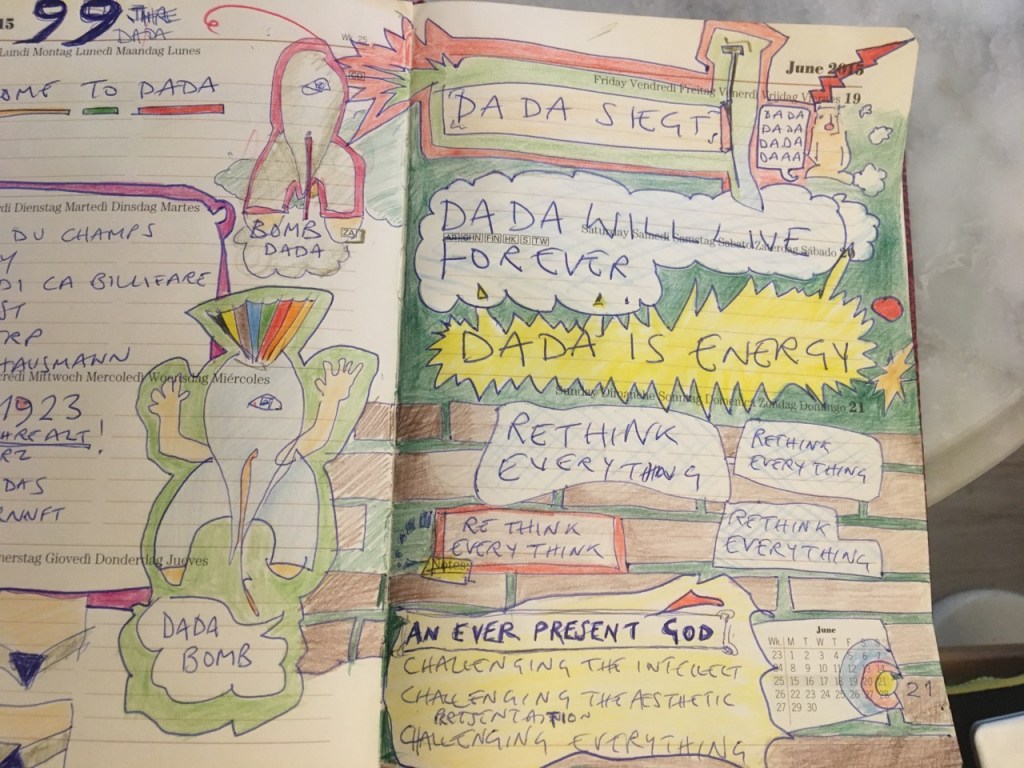 15
99 JAHRE
DADA
Lundi Montag Lunedì Maandag Lunes
OME TO DADA
BOMB
DADA
ZA
rdi Dienstag Martedì Dinsdag Martes
DU CHAMPS
DI CA BILLIFARE
ST
TRP
HAUSMANN
credi Mittwoch Mercoledì Woensdag Miércoles
1923
HREALT!
RZ
DAS
RNNFT
nerstag Giovedì Donderdag Jueves
DADA
BOMB
Wk. 25
June 2015
Friday Vendredi Freitag Venerdì Vrijdag Viernes 19
DADA SIEGT
DADA
DADA
DADA
DAAA
DADA WILL LIVE
Saturday Samedi Samstag Sabato Zaterdag Sábado 20
FOREVER
DADA IS ENERGY
Sunday Dimanche Sonntag Domenica Zondag Domingo 21
RETHINK
EVERYTHING
RETHINK
EVERYTHING
RETHINK
EVERYTHINK
RETHINK
EVERYTHING
Notes
AN EVER PRESENT GOD
CHALLENGING THE INTELLECT
CHALLENGING THE AESTHETIC
PRESENTATION
CHALLENGING EVERYTHING
June
Wk. M T W T F S S
23 1 2 3 4 5 6 7
24 8 9 10 11 12 13 14
25 15 16 17 18 19 20 21
26 22 23 24 25 26 27 28
27 29 30
21